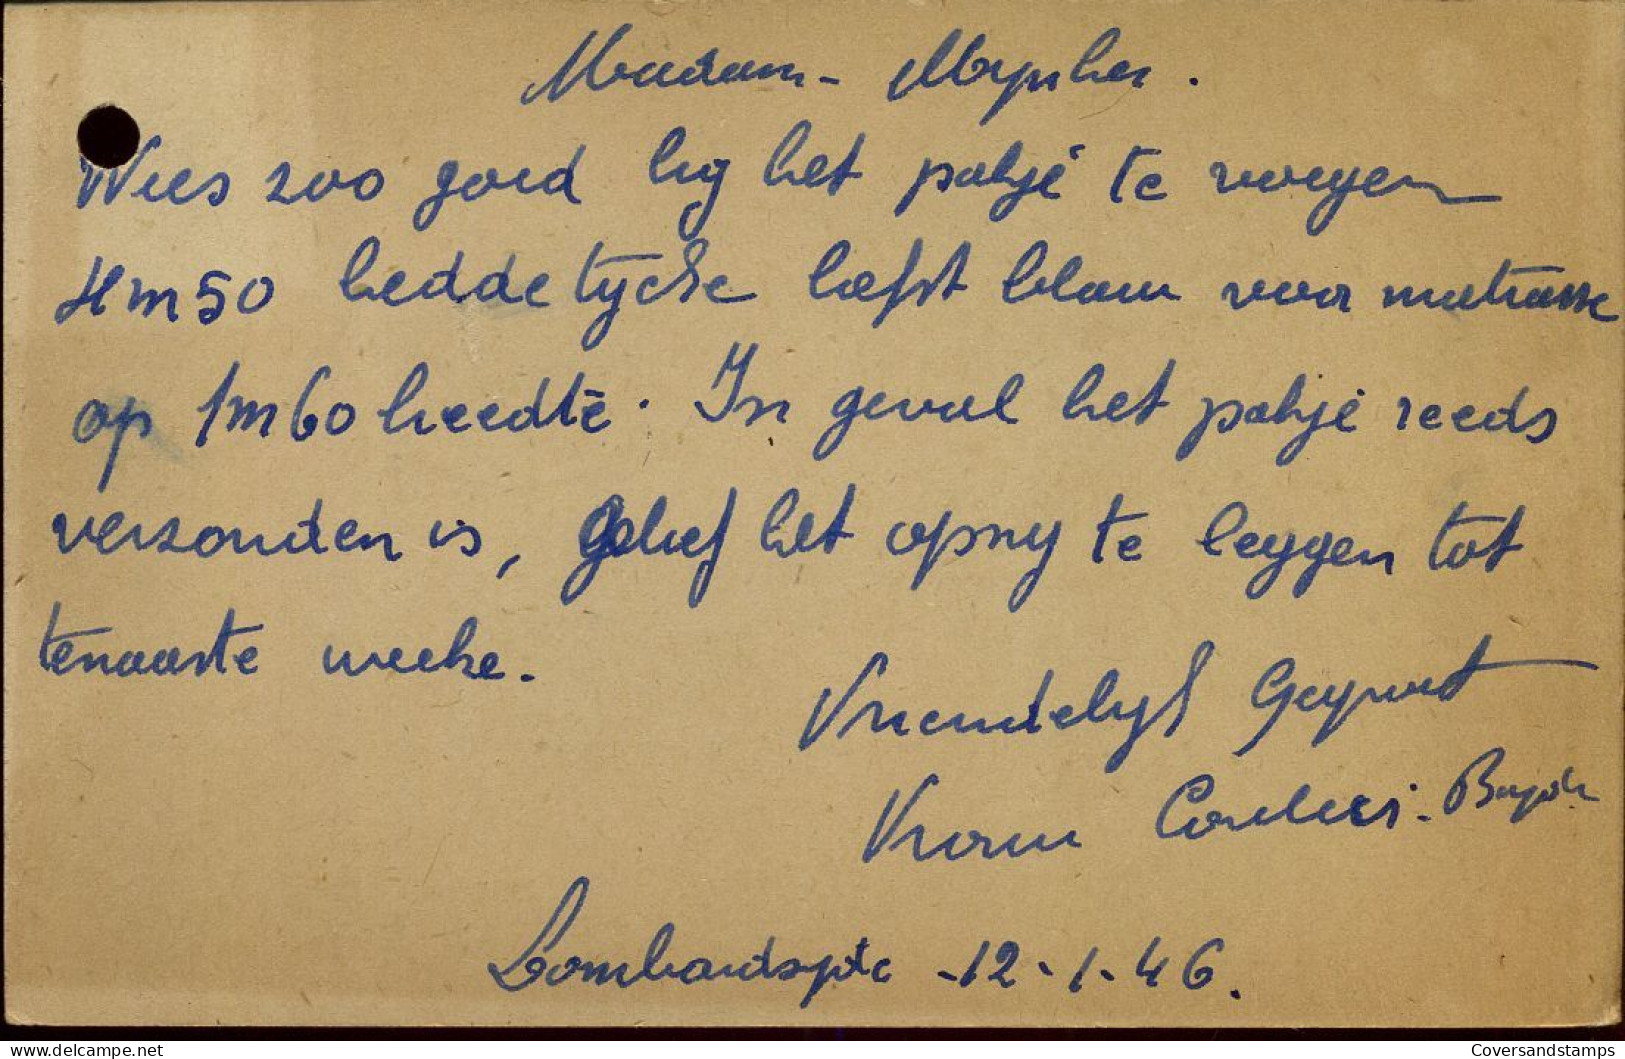 Madam - Mynher.
Wees zoo goed by het pakje te voegen
4m50 beddetycke liefst blauw voor matrasse
op 1m60 breedte. In geval het pakje reeds
verzonden is, gelief het opzy te leggen tot
tenaaste weeke.
Vriendelyk Gegroet
Vrouw
Lombardsyde -12-1-46.
CoversandStamps